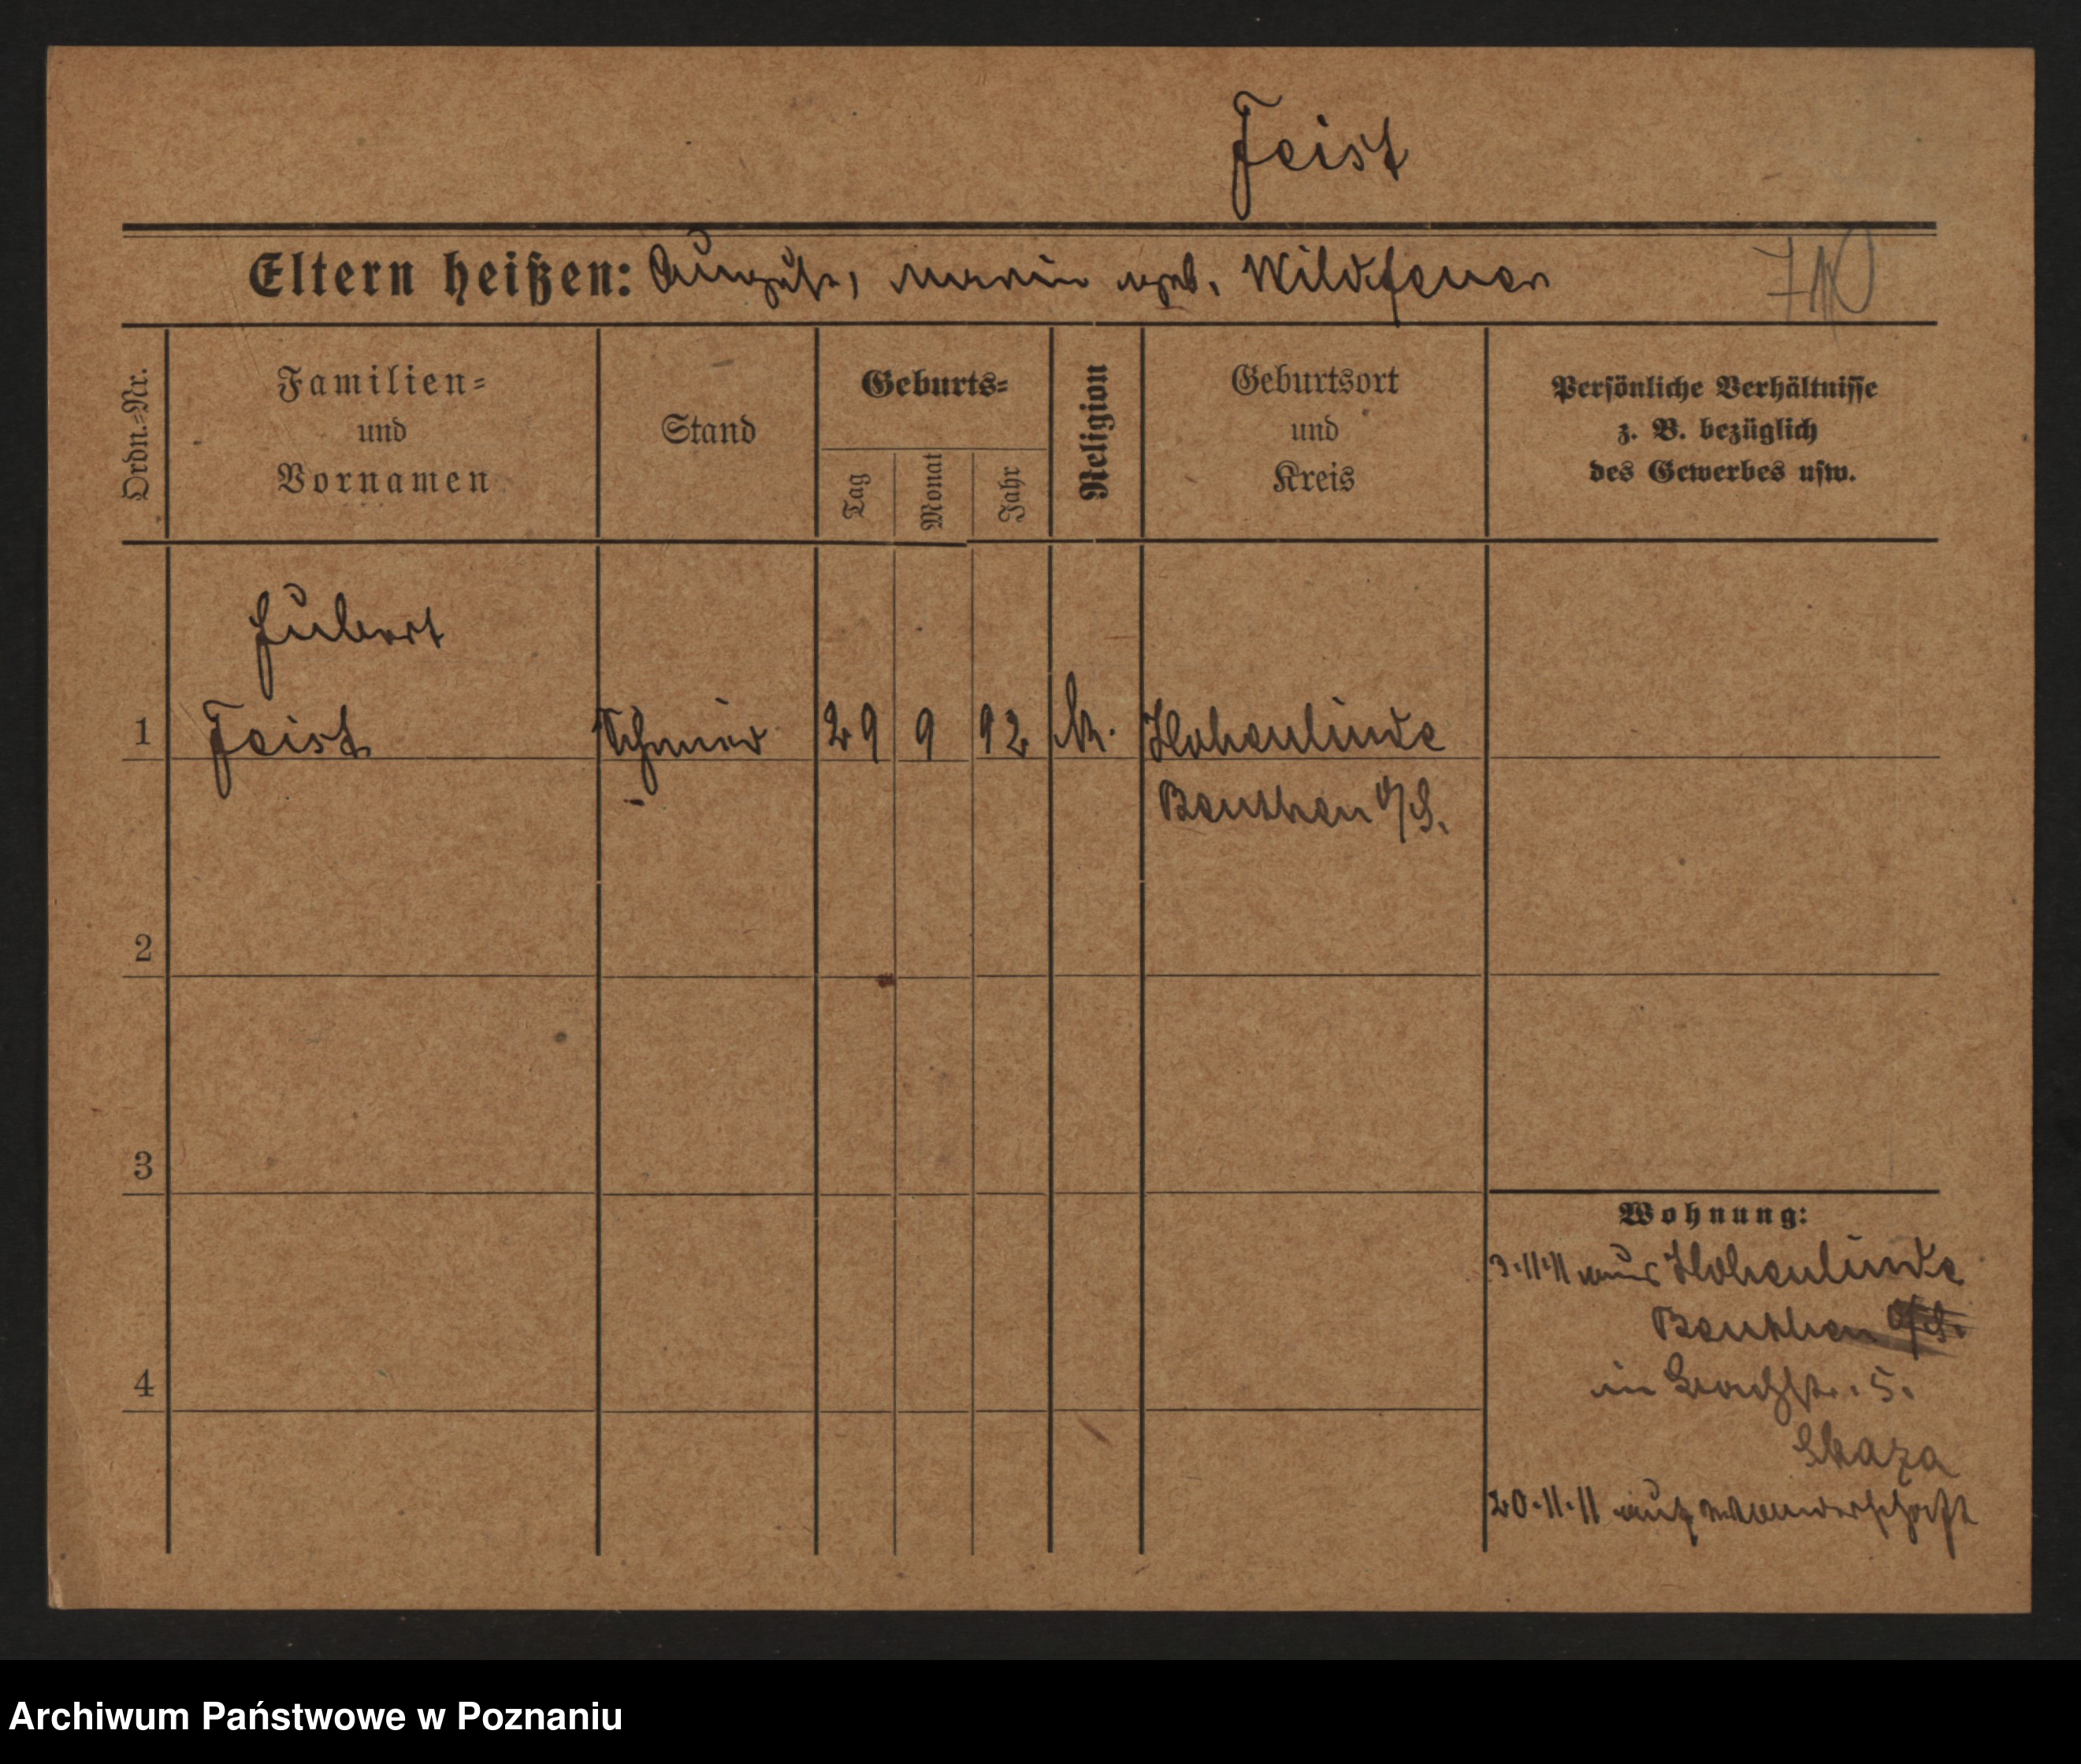 Feist
Eltern heißen: August, Marie geb. Wildfeuer
710
Ordn.-Nr.
Familien-
und
Vornamen
Stand
Geburts-
Tag
Monat
Jahr
Religion
Geburtsort
und
Kreis
Persönliche Verhältnisse
z. B. bezüglich
des Gewerbes usw.
Hubert
1 Feist Schmied 29 9 92 k. Hohenlinde
Beuthen O/S.
2
3
4
Wohnung:
3.11.11 aus Hohenlinde
Beuthen O/S.
in 5.
20.11.11 auf Wanderschaft
Archiwum Państwowe w Poznaniu